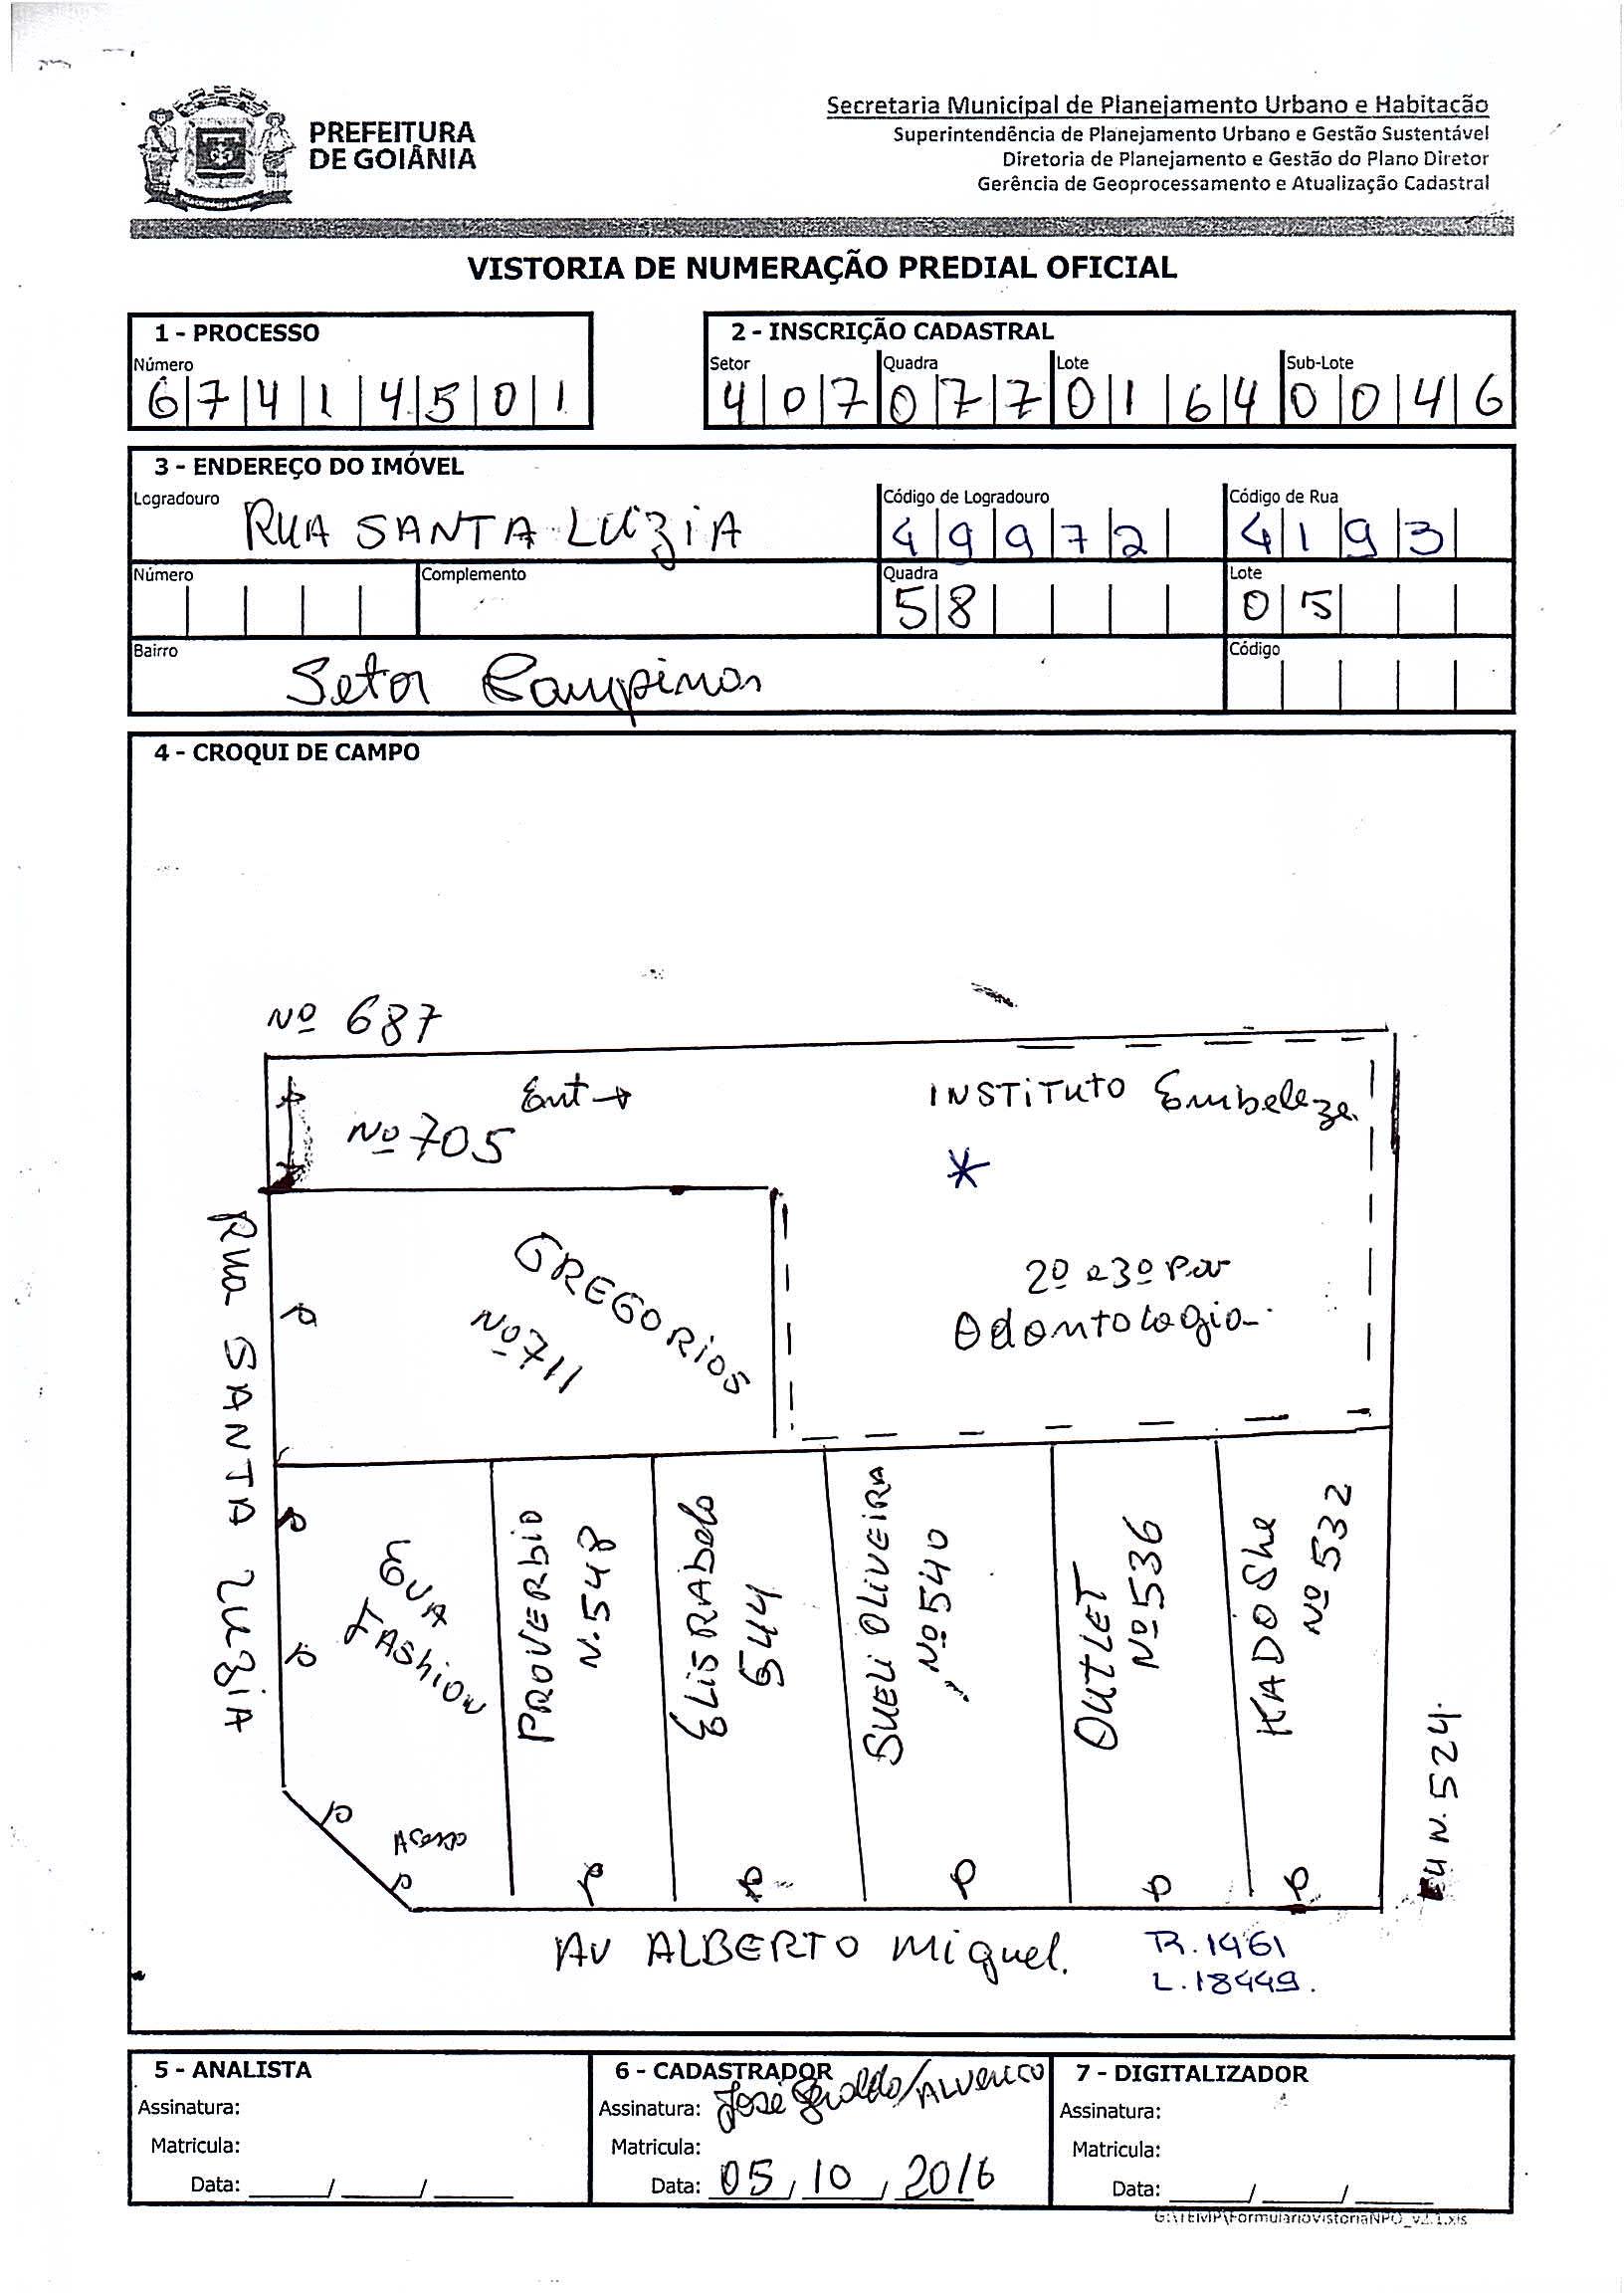 PREFEITURA
DE GOIÂNIA
Secretaria Municipal de Planejamento Urbano e Habitação
Superintendência de Planejamento Urbano e Gestão Sustentável
Diretoria de Planejamento e Gestão do Plano Diretor
Gerência de Geoprocessamento e Atualização Cadastral
VISTORIA DE NUMERAÇÃO PREDIAL OFICIAL
1 - PROCESSO
Número
6 7 4 1 4 5 0 1
2 - INSCRIÇÃO CADASTRAL
Setor Quadra Lote Sub-Lote
4 0 7 0 7 7 0 1 6 4 0 0 4 6
3 - ENDEREÇO DO IMÓVEL
Logradouro RUA SANTA LUZIA
Código de Logradouro
4 9 9 7 2
Código de Rua
4 1 9 3
Número
Complemento
Quadra
58
Lote
05
Bairro
Setor Campinas
Código
4 - CROQUI DE CAMPO
Nº 687
Ent →
Nº 705
INSTITUTO Embeleze
*
2º e 3º Pav
Odontologia
RUA SANTA LUZIA
GREGORIOS
Nº 711
EVA
FASHION
Acesso
PROVERBIO
N. 548
ELIS RABELO
544
SUELI OLIVEIRA
Nº 540
OUTLET
Nº 536
KADOShe
Nº 532
N. 524.
AV ALBERTO Miguel.
R. 1461
L. 18449.
5 - ANALISTA
Assinatura:
Matricula:
Data: ____/____/____
6 - CADASTRADOR
Assinatura: José Geraldo/
Matricula:
Data: 05/10/2016
7 - DIGITALIZADOR
Assinatura:
Matricula:
Data: ____/____/____
G:\TEMP\FormularioVistoriaNPO_v2.1.xls